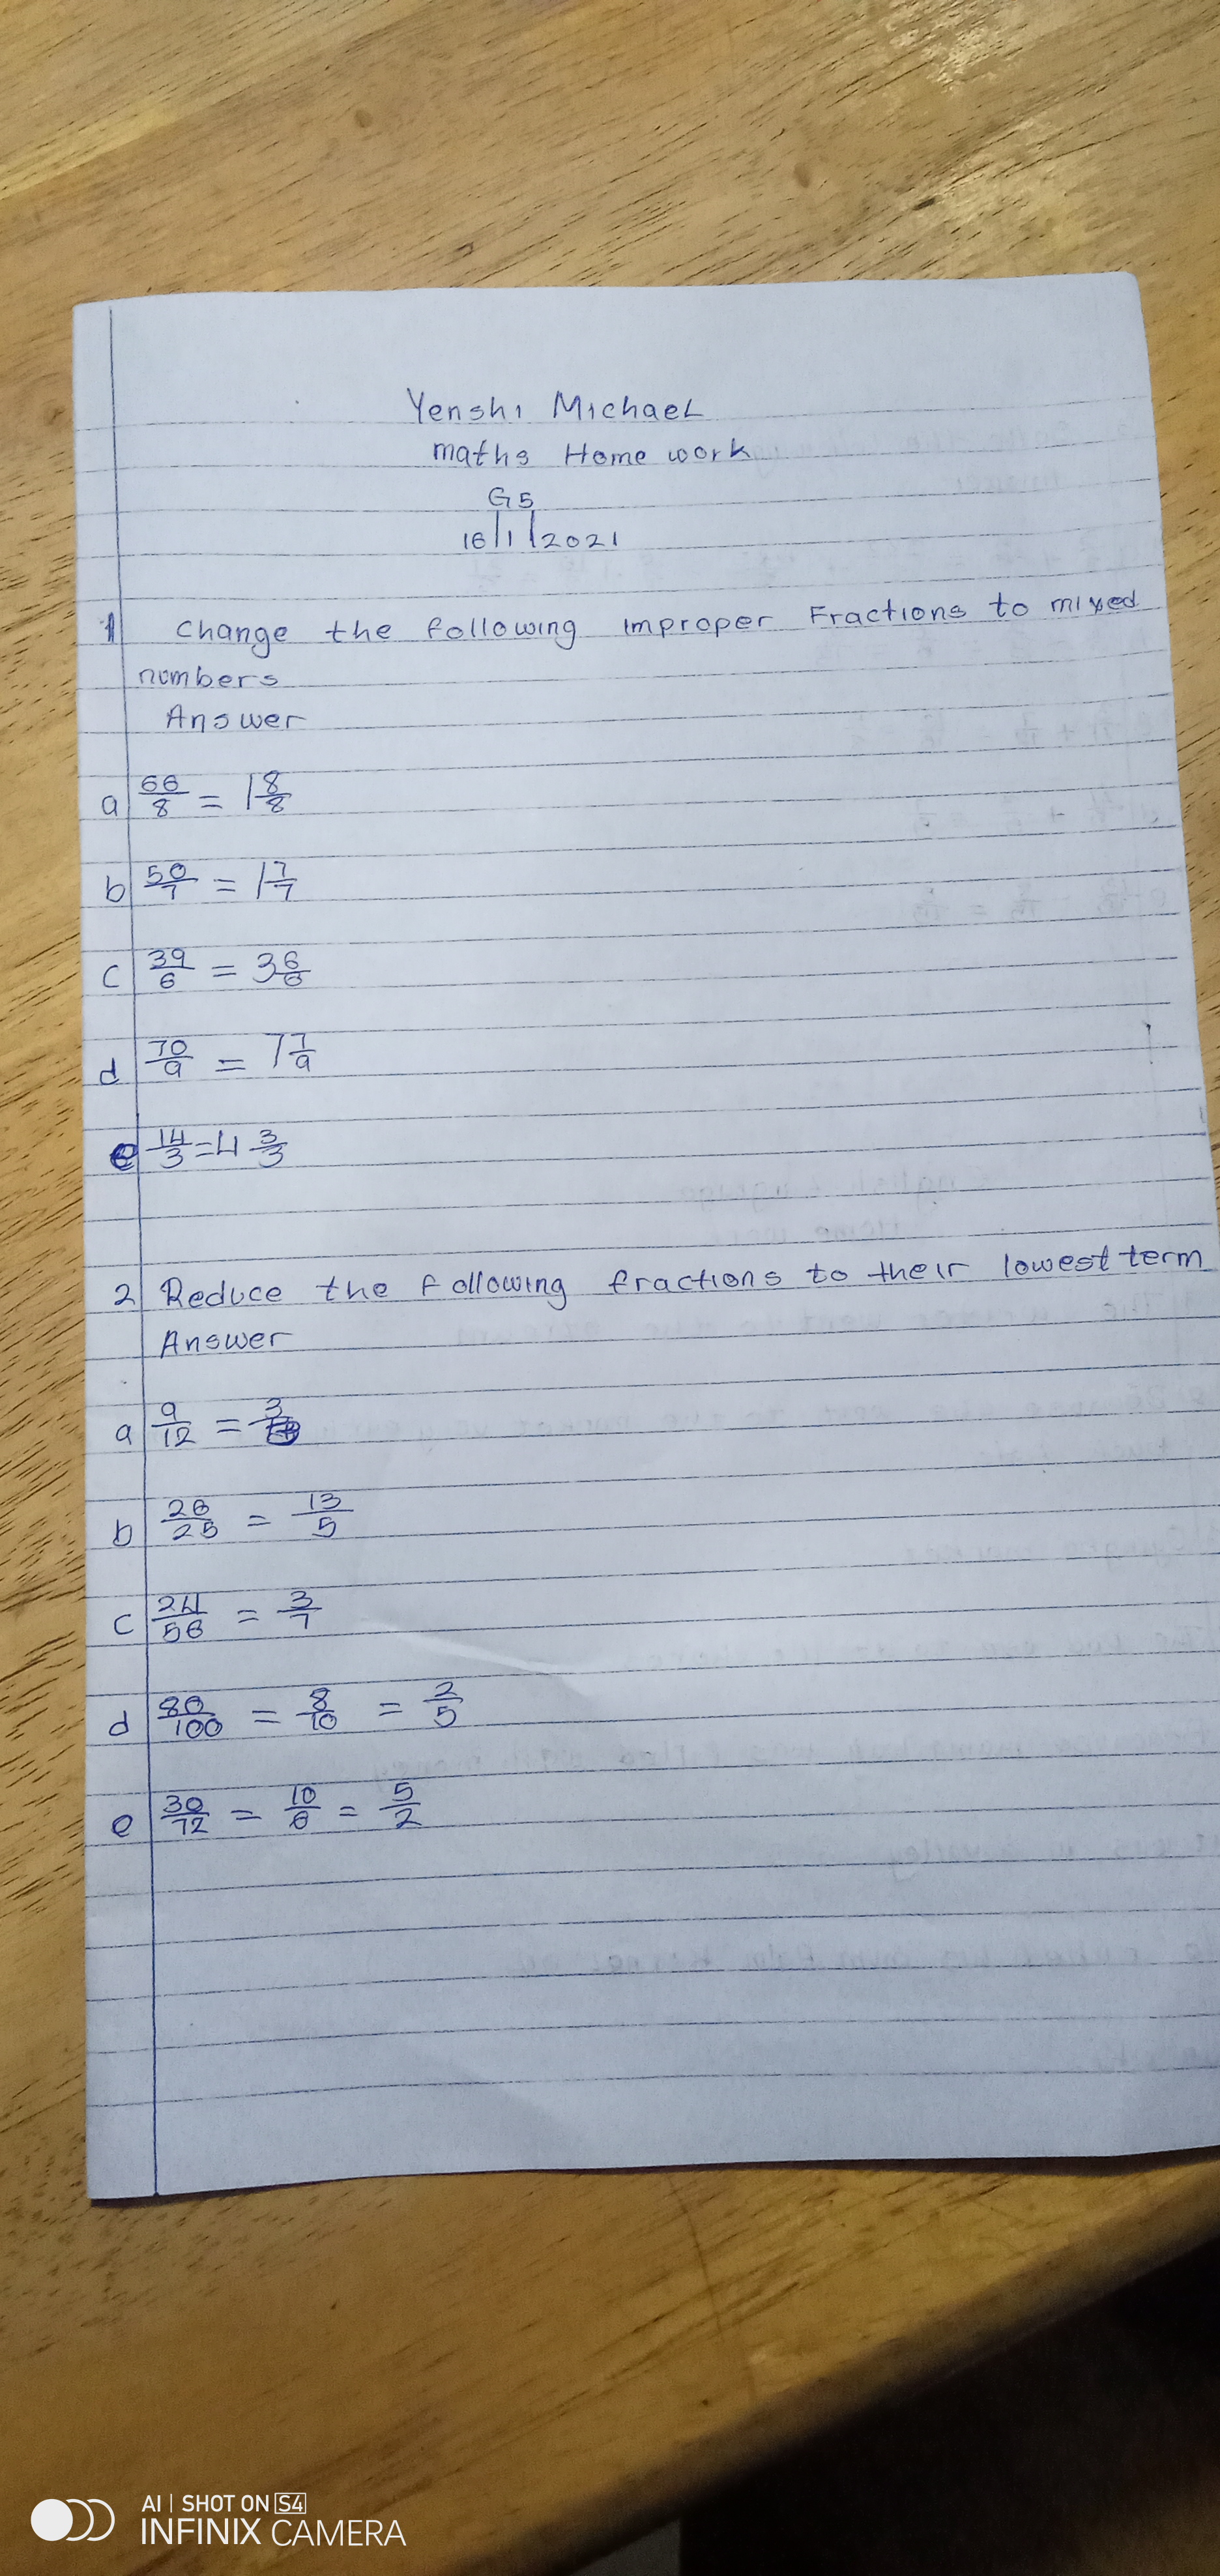 Yenshi Michael
maths Home work
G5
16/1/2021
1 Change the following improper Fractions to mixed
numbers
Answer
a 66/8 = 1 8/8
b 50/7 = 1 7/7
c 39/6 = 3 6/6
d 70/9 = 7 7/9
e 14/3 = 4 3/3
2 Reduce the following fractions to their lowest term
Answer
a 9/12 = 3/
b 26/25 = 13/5
c 24/56 = 3/7
d 80/100 = 8/10 = 2/5
e 30/12 = 10/6 = 5/2
AI | SHOT ON S4
INFINIX CAMERA